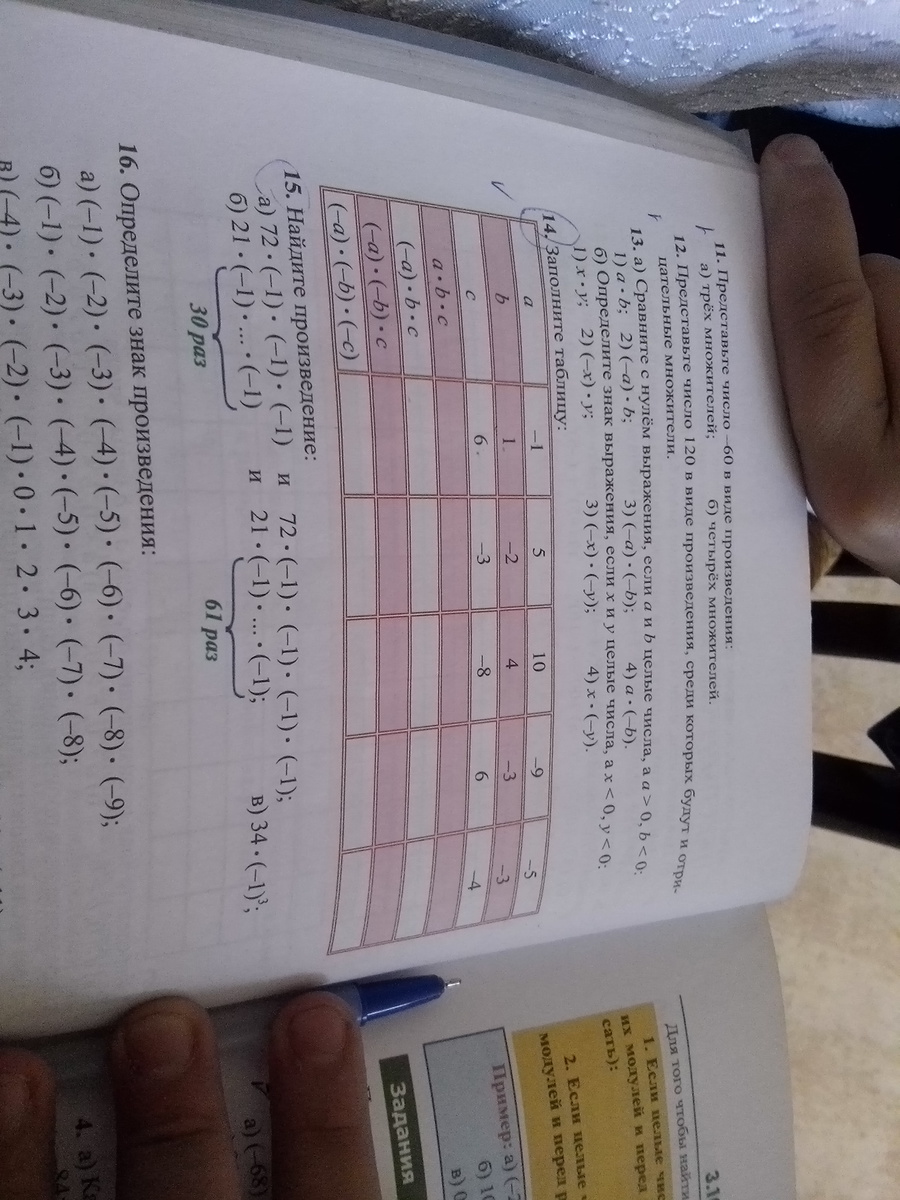 11. Представьте число –60 в виде произведения:
а) трёх множителей; б) четырёх множителей.
12. Представьте число 120 в виде произведения, среди которых будут и отри-
цательные множители.
13. а) Сравните с нулём выражения, если a и b целые числа, а a > 0, b < 0:
1) a · b; 2) (–a) · b; 3) (–a) · (–b); 4) a · (–b).
б) Определите знак выражения, если x и y целые числа, а x < 0, y < 0:
1) x · y; 2) (–x) · y; 3) (–x) · (–y); 4) x · (–y).
14. Заполните таблицу:
a –1 5 10 –9 –5
b 1 –2 4 –3 –3
c 6 –3 –8 6 –4
a · b · c
(–a) · b · c
(–a) · (–b) · c
(–a) · (–b) · (–c)
15. Найдите произведение:
а) 72 · (–1) · (–1) · (–1) и 72 · (–1) · (–1) · (–1) · (–1);
б) 21 · (–1) · ... · (–1) и 21 · (–1) · ... · (–1); в) 34 · (–1)³;
30 раз 61 раз
16. Определите знак произведения:
а) (–1) · (–2) · (–3) · (–4) · (–5) · (–6) · (–7) · (–8) · (–9);
б) (–1) · (–2) · (–3) · (–4) · (–5) · (–6) · (–7) · (–8);
в) (–4) · (–3) · (–2) · (–1) · 0 · 1 · 2 · 3 · 4;
3.1
Для того чтобы найти
1. Если целые
их модулей и перед
сать):
2. Если целые
модулей и перед
Пример: а)
б)
в)
Задания
а) (–68)
4. а)